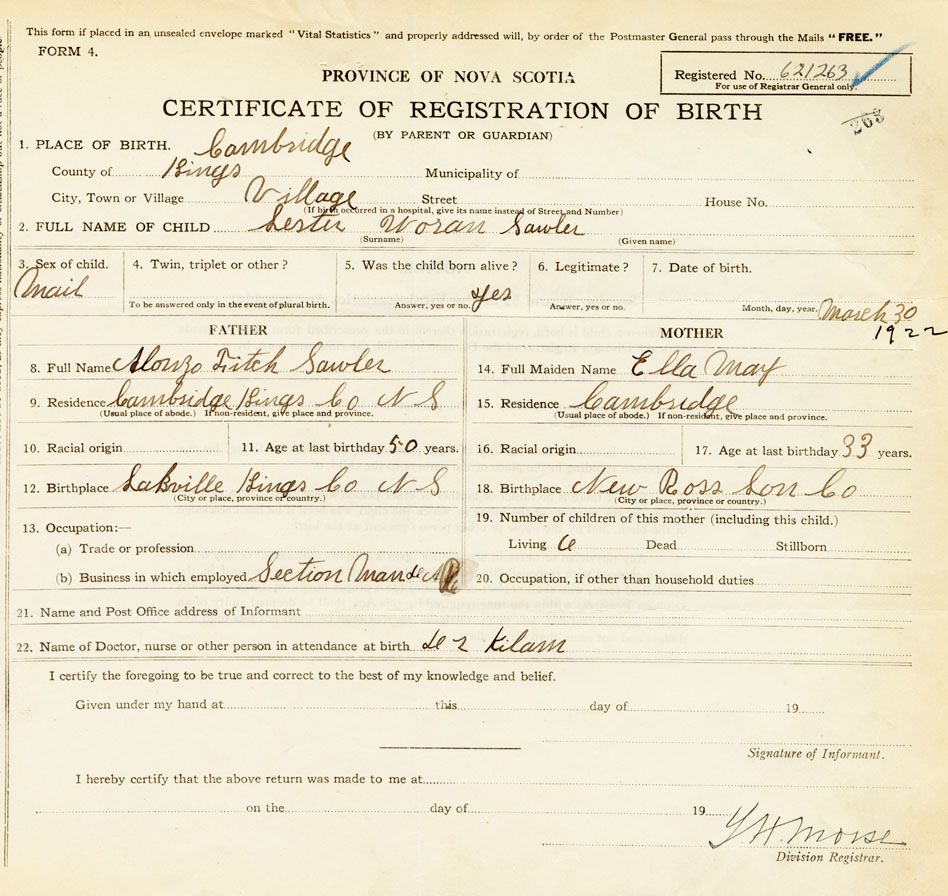 This form if placed in an unsealed envelope marked "Vital Statistics" and properly addressed will, by order of the Postmaster General pass through the Mails "FREE."
FORM 4.
Registered No. 621263
For use of Registrar General only.
PROVINCE OF NOVA SCOTIA
CERTIFICATE OF REGISTRATION OF BIRTH
263
(BY PARENT OR GUARDIAN)
1. PLACE OF BIRTH. Cambridge
County of Kings Municipality of
City, Town or Village Village Street House No.
(If birth occurred in a hospital, give its name instead of Street and Number)
2. FULL NAME OF CHILD Lester Woran Sawler
(Surname) (Given name)
3. Sex of child. 4. Twin, triplet or other? 5. Was the child born alive? 6. Legitimate? 7. Date of birth.
Mail yes
To be answered only in the event of plural birth. Answer, yes or no. Answer, yes or no. Month, day, year. March 30
1922
FATHER MOTHER
8. Full Name Alonzo Fitch Sawler 14. Full Maiden Name Ella May
9. Residence Cambridge Kings Co N S 15. Residence Cambridge
(Usual place of abode.) If non-resident, give place and province. (Usual place of abode.) If non-resident, give place and province.
10. Racial origin 11. Age at last birthday 50 years. 16. Racial origin 17. Age at last birthday 33 years.
12. Birthplace Lakville Kings Co N S 18. Birthplace New Ross Lon Co
(City or place, province or country.) (City or place, province or country.)
13. Occupation:— 19. Number of children of this mother (including this child.)
(a) Trade or profession Living 6 Dead Stillborn
(b) Business in which employed Section Man 20. Occupation, if other than household duties
21. Name and Post Office address of Informant
22. Name of Doctor, nurse or other person in attendance at birth Kilam
I certify the foregoing to be true and correct to the best of my knowledge and belief.
Given under my hand at this day of 19
Signature of Informant.
I hereby certify that the above return was made to me at
on the day of 19
Y. H. Morse
Division Registrar.